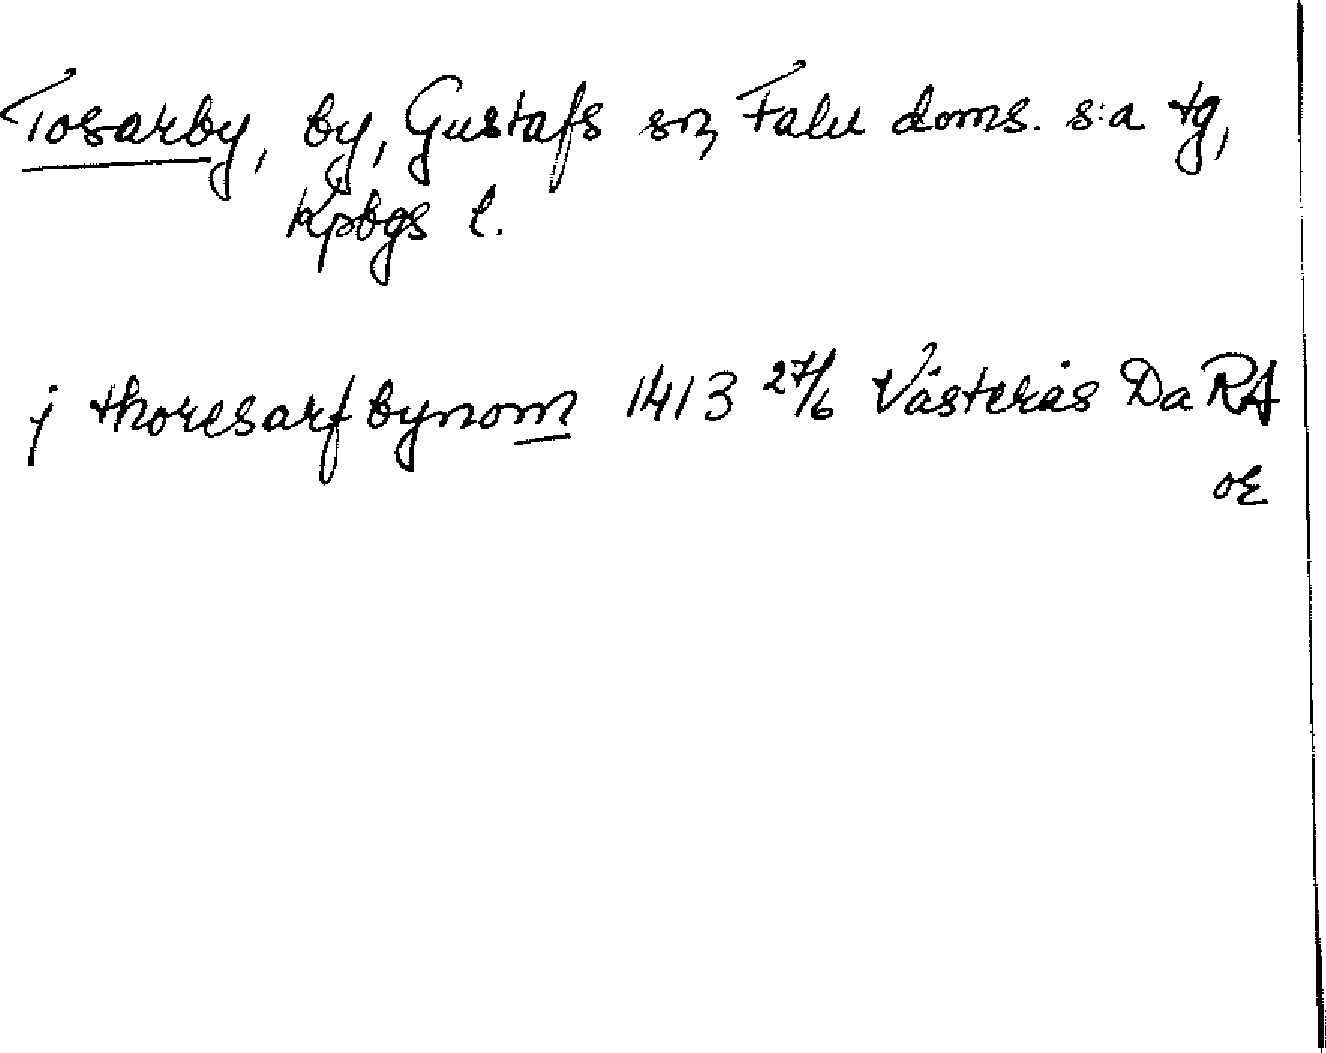 Tosarby, by, Gustafs sn, Falu doms. s:a tg,
Kpbgs l.
j thoresarfbynom 1413 27/6 Västerås Da RA
OE